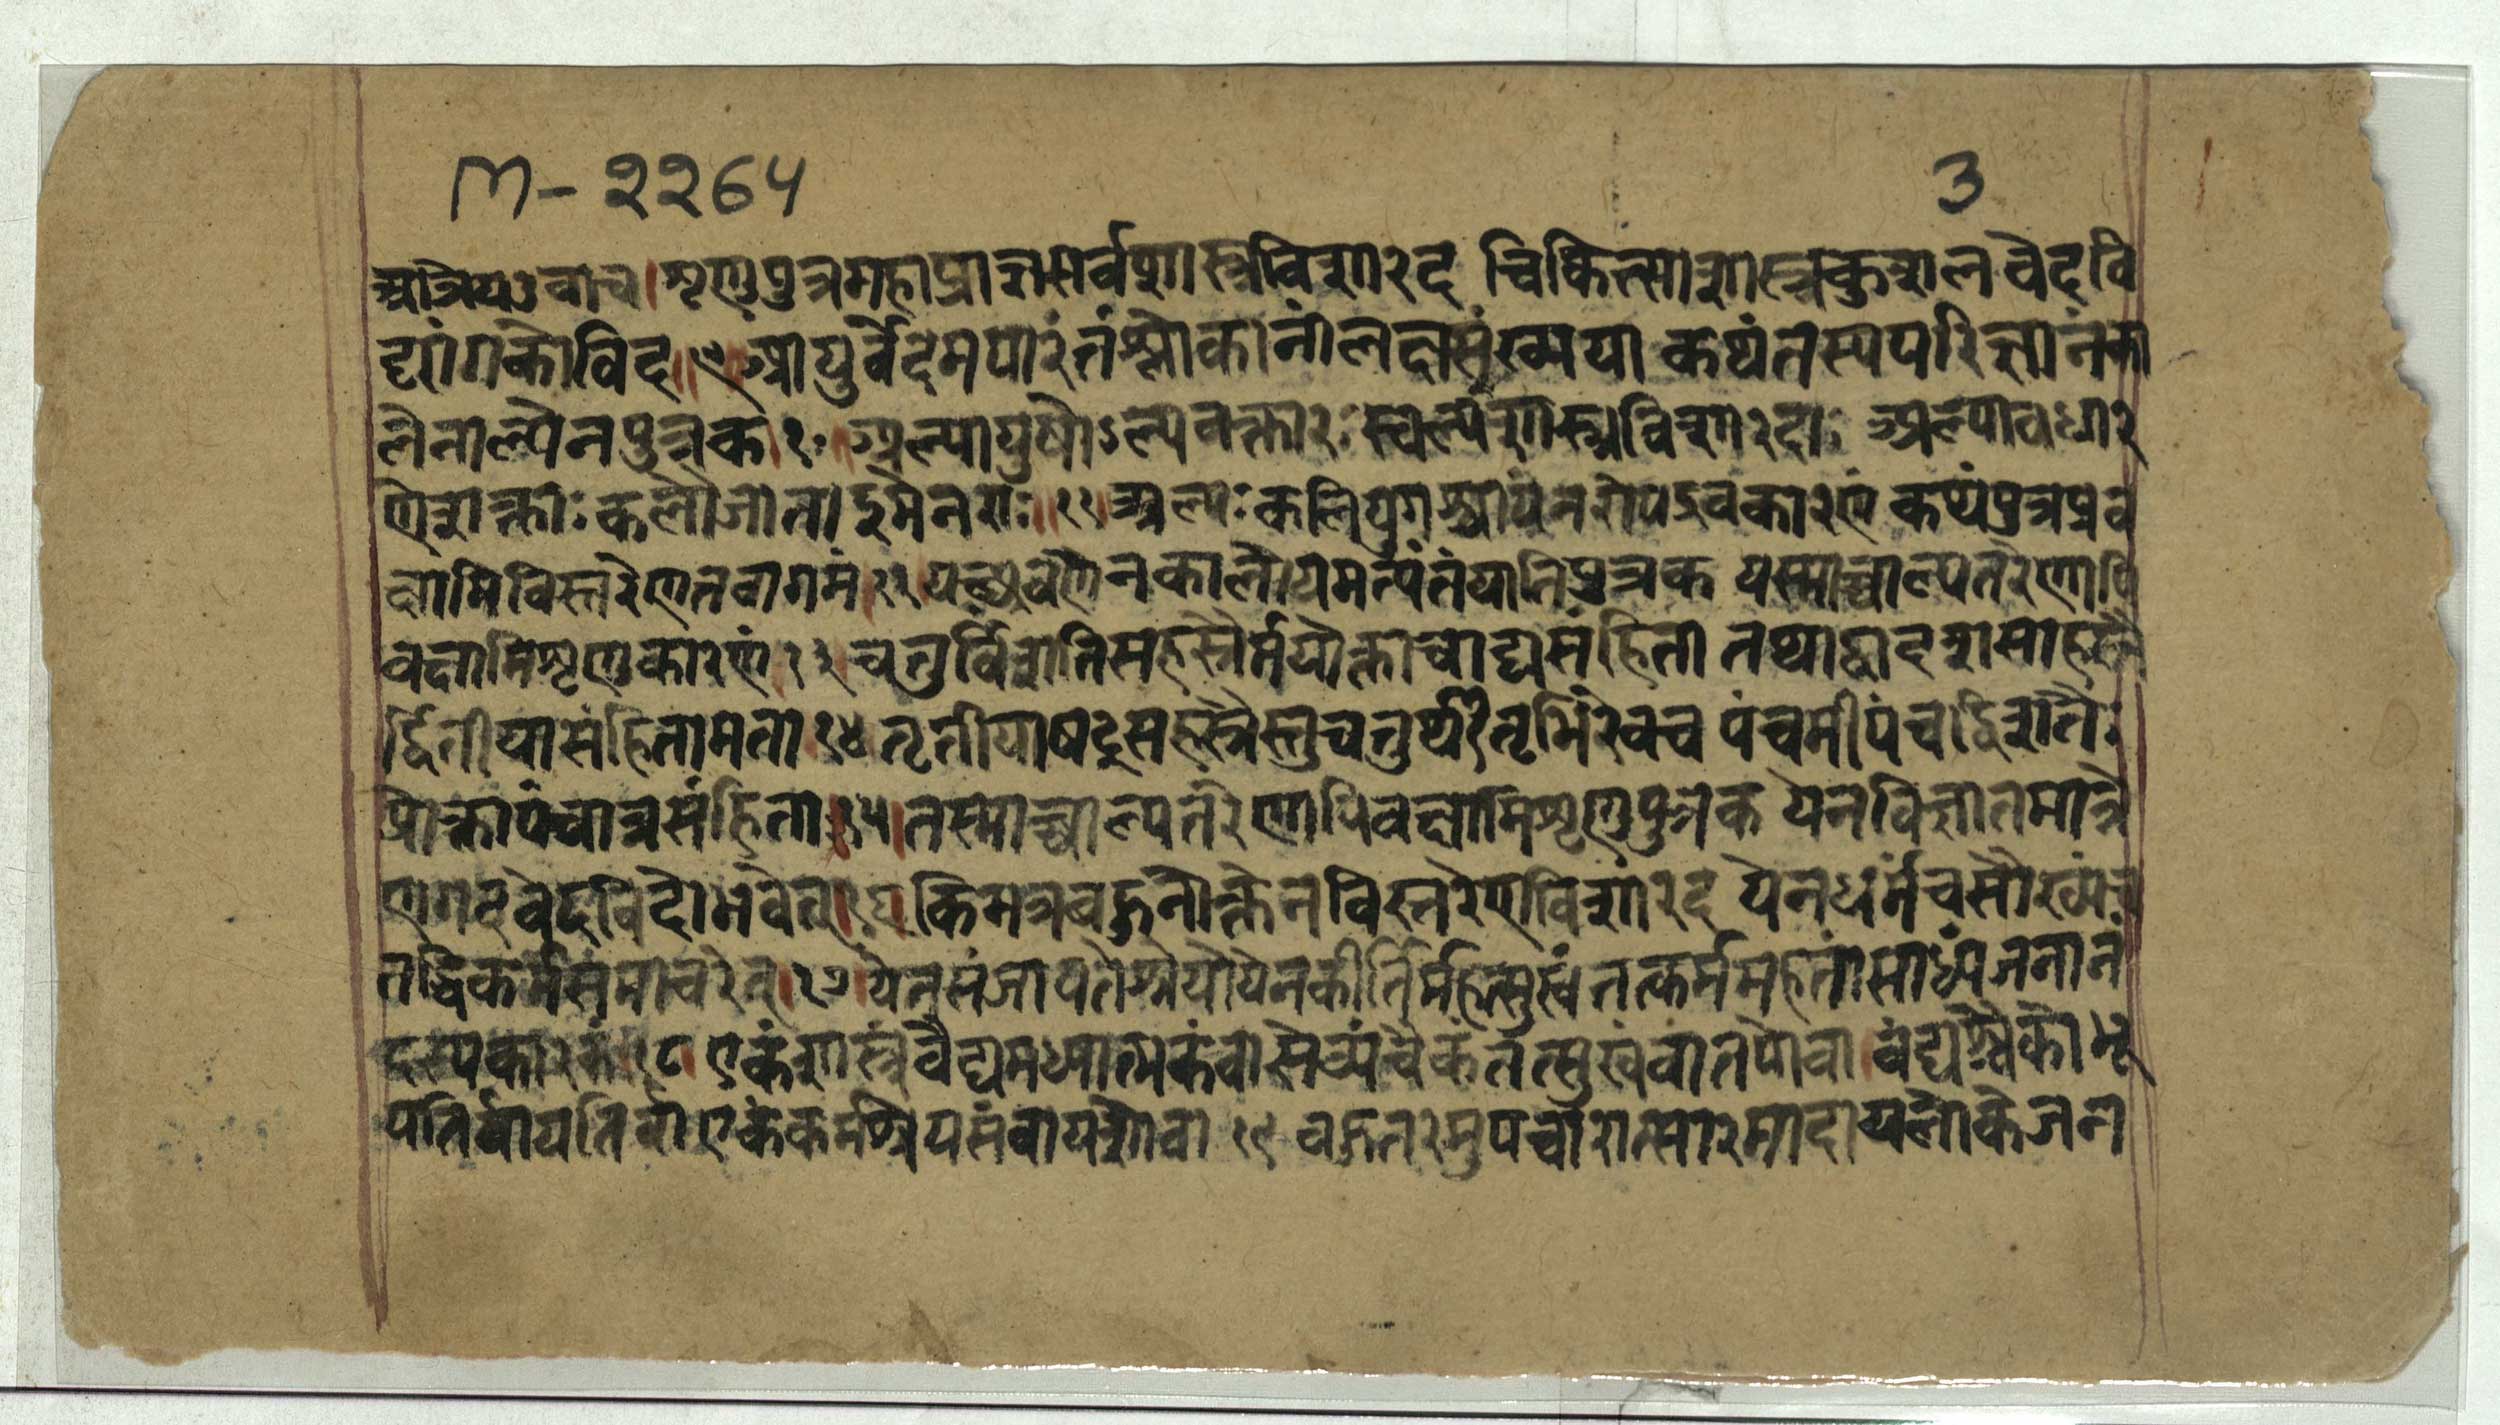 M-२२64
3
आत्रेयउवाच।शृणुपुत्रमहाप्राज्ञसर्वशास्त्रविशारद चिकित्साशास्त्रकुशल वैदवि
द्यांगकोविद॥९आयुर्वेदमपारंतंश्लोकानांलक्षसंख्यया कथंतस्यपरिज्ञानंका
लेनाल्पेनपुत्रक।१॰।अल्पायुषोऽल्पवक्तारःस्वल्पशास्त्रविशारदाः अल्पावधार
णेशक्ताःकलौजाताइमेनराः॥११।अल्पःकलियुगश्चायंनरोपद्रवकारणं कथंपुत्रप्रव
क्षामिविस्तरेणतवागमं।१२।यच्छ्रवणेनकालोयमत्यंतंयातिपुत्रक यस्माच्चाल्पतरेणापि
वक्षामिशृणुकारणं।१३।चतुर्विंशतिसहस्रैर्मयोक्ताचाद्यसंहिता तथाद्वादशसाहस्रै
र्द्वितीयासंहितामता।१४।तृतीयाषट्सहस्रैस्तुचतुर्थीतृभिरेवच पंचमीपंचद्विशतैः
प्रोक्तापंचात्रसंहिता।१५।तस्माच्चाल्पतरेणापिवक्षामिशृणुपुत्रक येनविज्ञातमात्रे
णगदवेदविदोभवेत्।१६।किमत्रबहुनोक्तेनविस्तरेणविशारद येनधर्मंचसौख्यंच
तद्धिकर्मसमाचरेत्।१७।येनसंजायतेश्रेयोयेनकीर्तिर्महत्सुखं तत्कर्ममहतांसाध्यंजनान
१८।एकंशास्त्रंवैद्यमध्यात्मकंवासेव्यंचैकंतत्सुखंवातपोवा।वंद्यश्चैकोभू
पतिर्वायतिर्वाएकंकर्मश्रेयसंवायशोवा १९ बहुतरमुपचारात्सारमादायलोकेजन